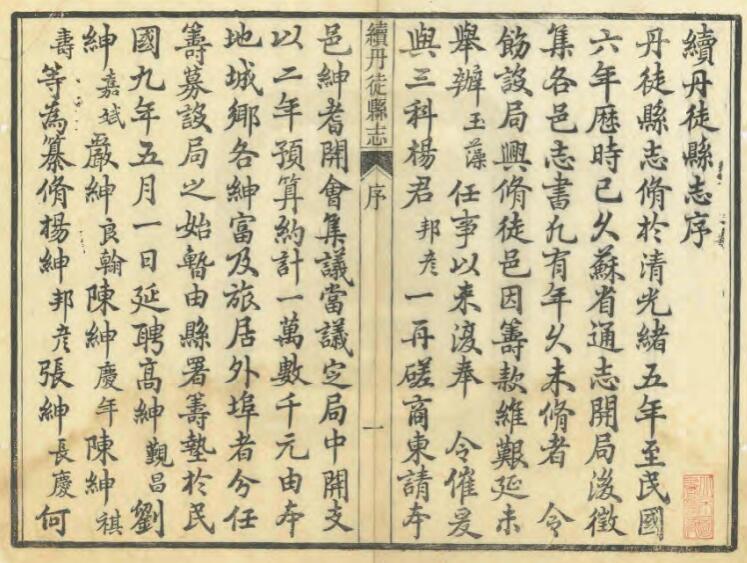 續丹徒縣志序
丹徒縣志脩於清光緒五年至民國
六年歷時已久蘇省通志開局後徵
集各邑志書凢有年久未脩者　令
飭設局興脩徒邑因籌款維艱延未
舉辦玉藻任事以来渡奉　令催爰
與三科楊君邦彦一再磋商柬請本
續丹徒縣志
序
一
邑紳耆開會集議當議定局中開支
以二年預算約計一萬數千元由本
地城鄉各紳富及旅居外埠者分任
籌募設局之始暫由縣署籌墊於民
國九年五月一日延聘高紳覲昌劉
紳嘉斌嚴紳良翰陳紳慶年陳紳祺
壽等為纂脩楊紳邦彦張紳長慶何